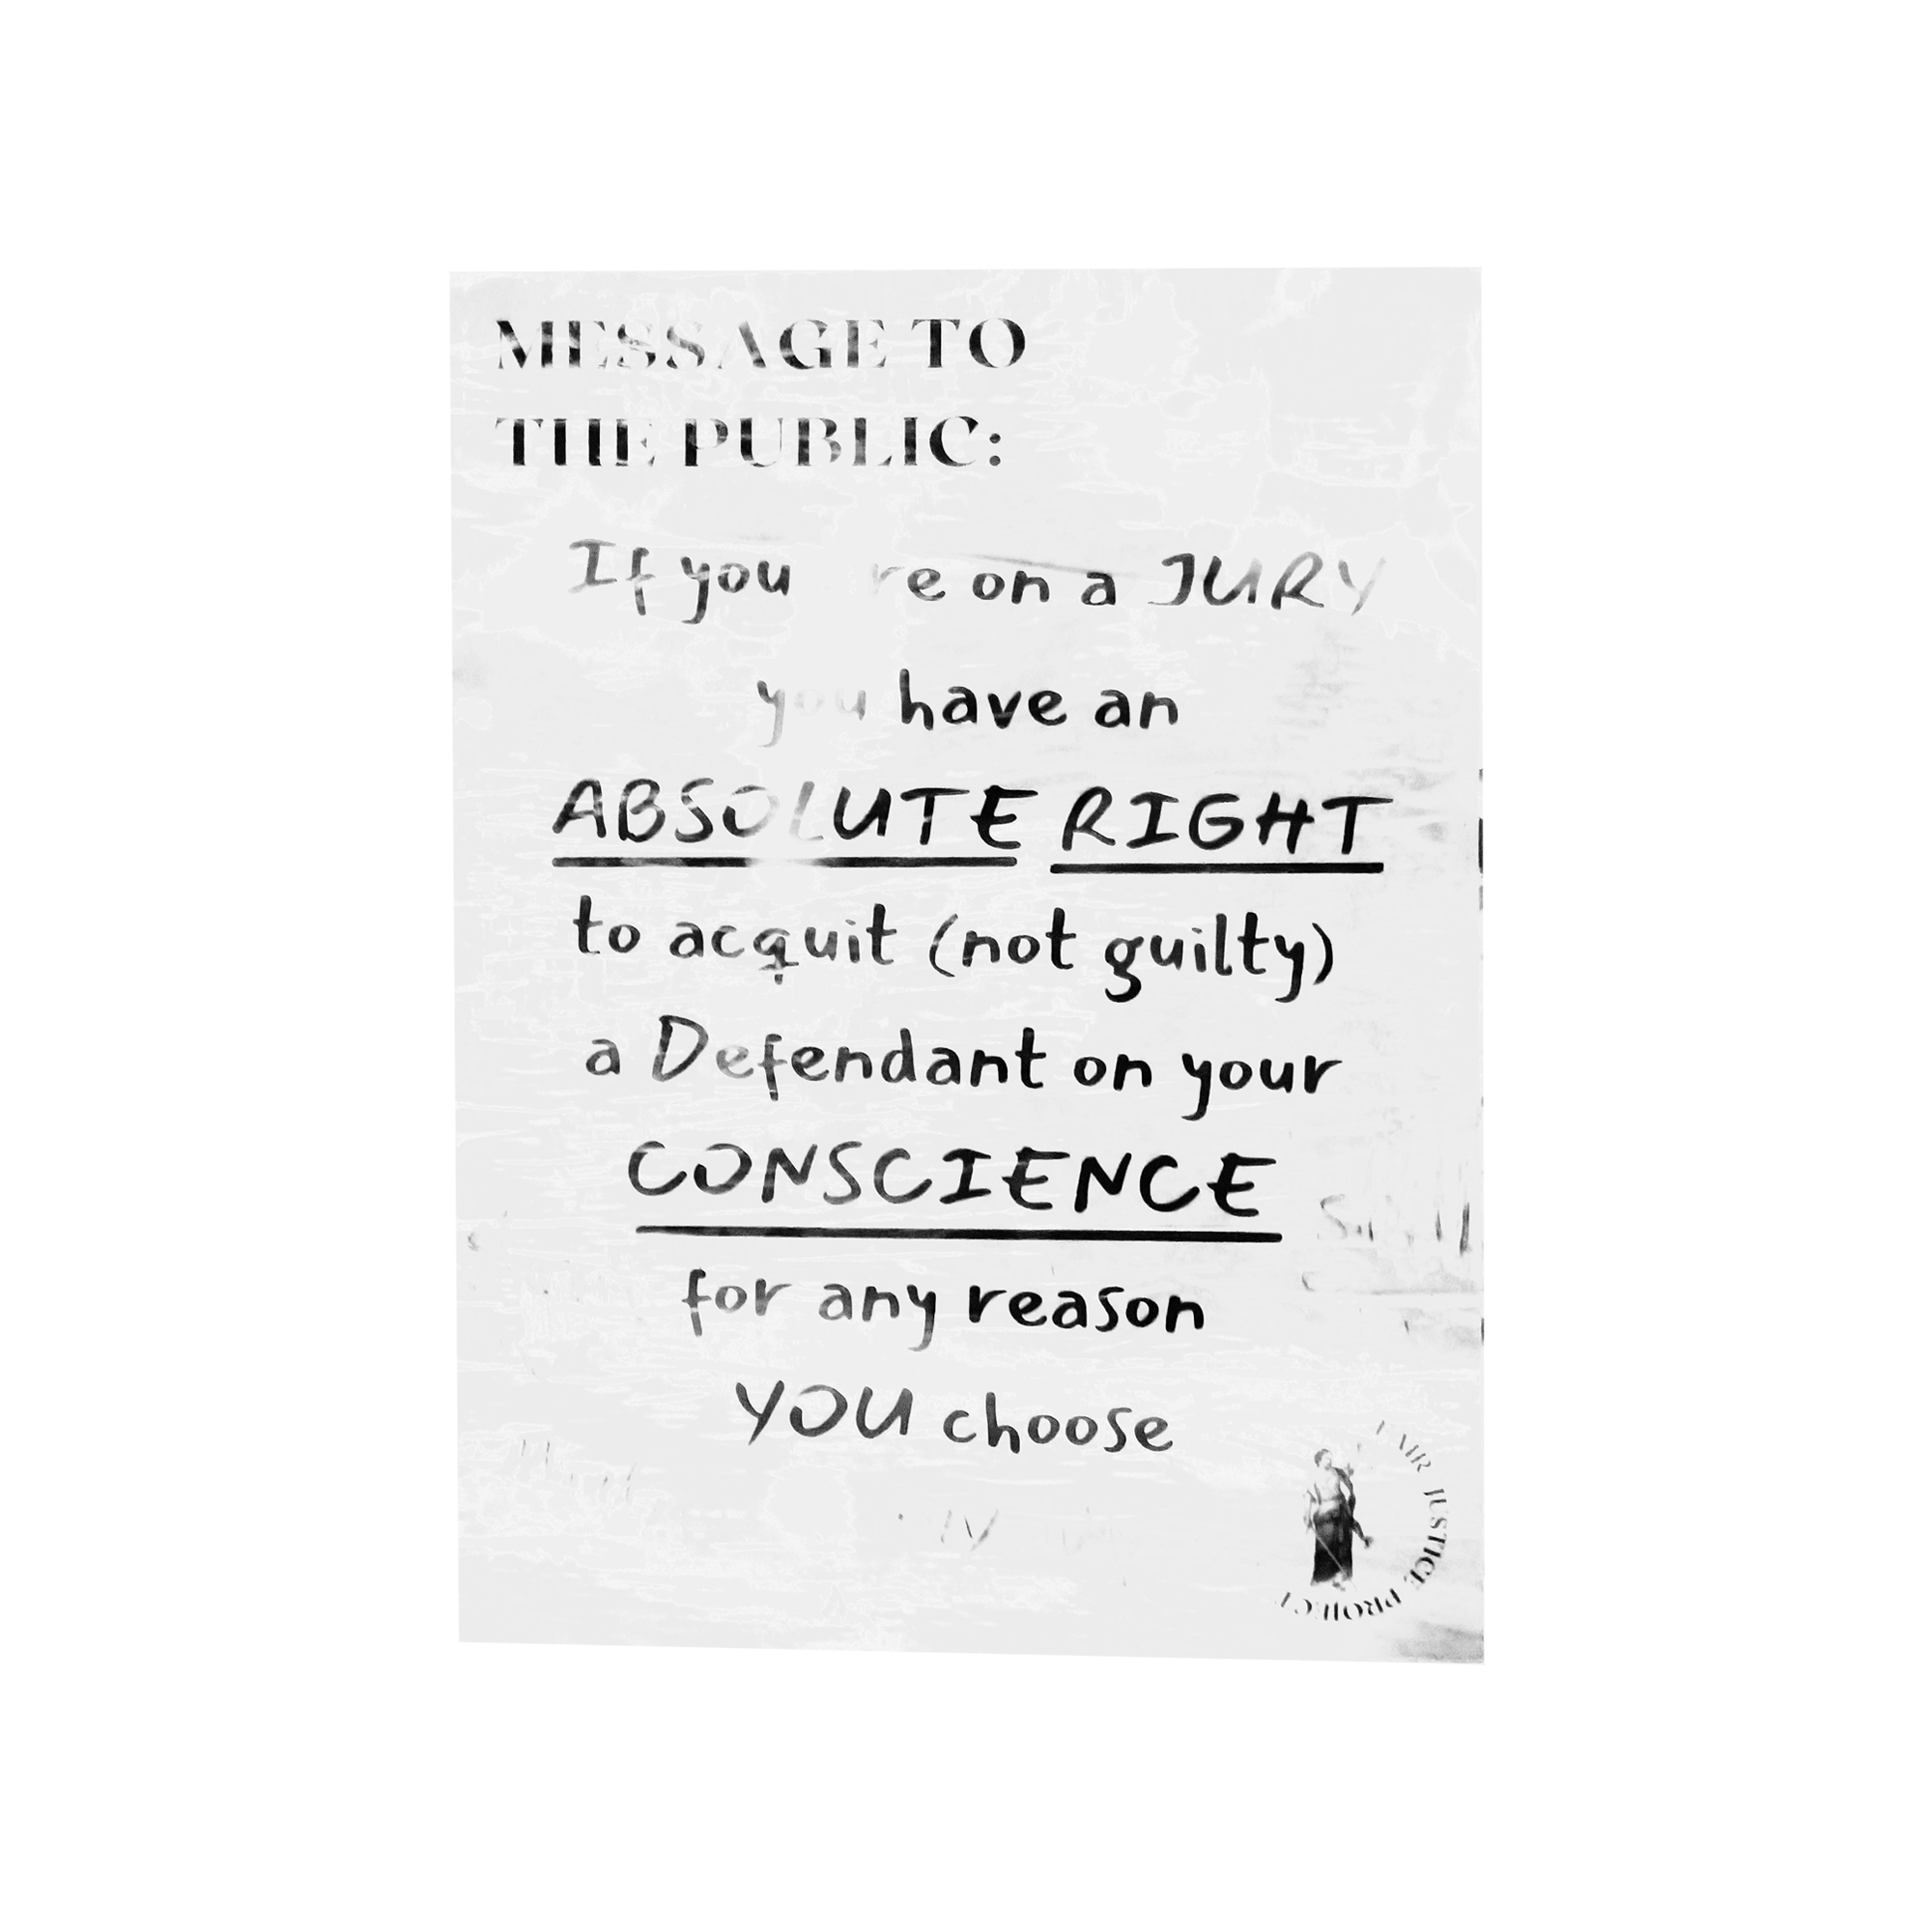 MESSAGE TO
THE PUBLIC:
If you re on a JURY
you have an
ABSOLUTE RIGHT
to acquit (not guilty)
a Defendant on your
CONSCIENCE
for any reason
YOU choose
FAIR JUSTICE PROJECT